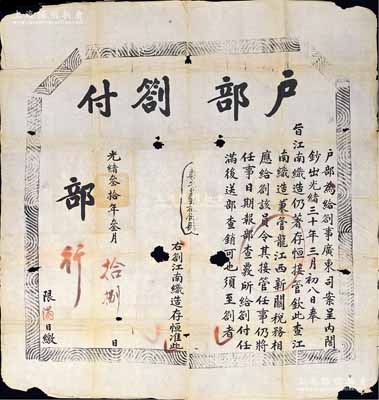 户部劄付
户部為給劄事廣東司案呈內閣
鈔出光緒三十年三月初八日奉
旨江南織造仍著存恒接管欽此查江
南織造兼管龍江西新關稅務相
應給劄該員令其接管任事仍將
任事日期報部查覈所給劄付任
滿後送部查銷可也須至劄者
右劄江南織造存恒准此
光緒叁拾年叁月拾捌日
部行
限滿日繳